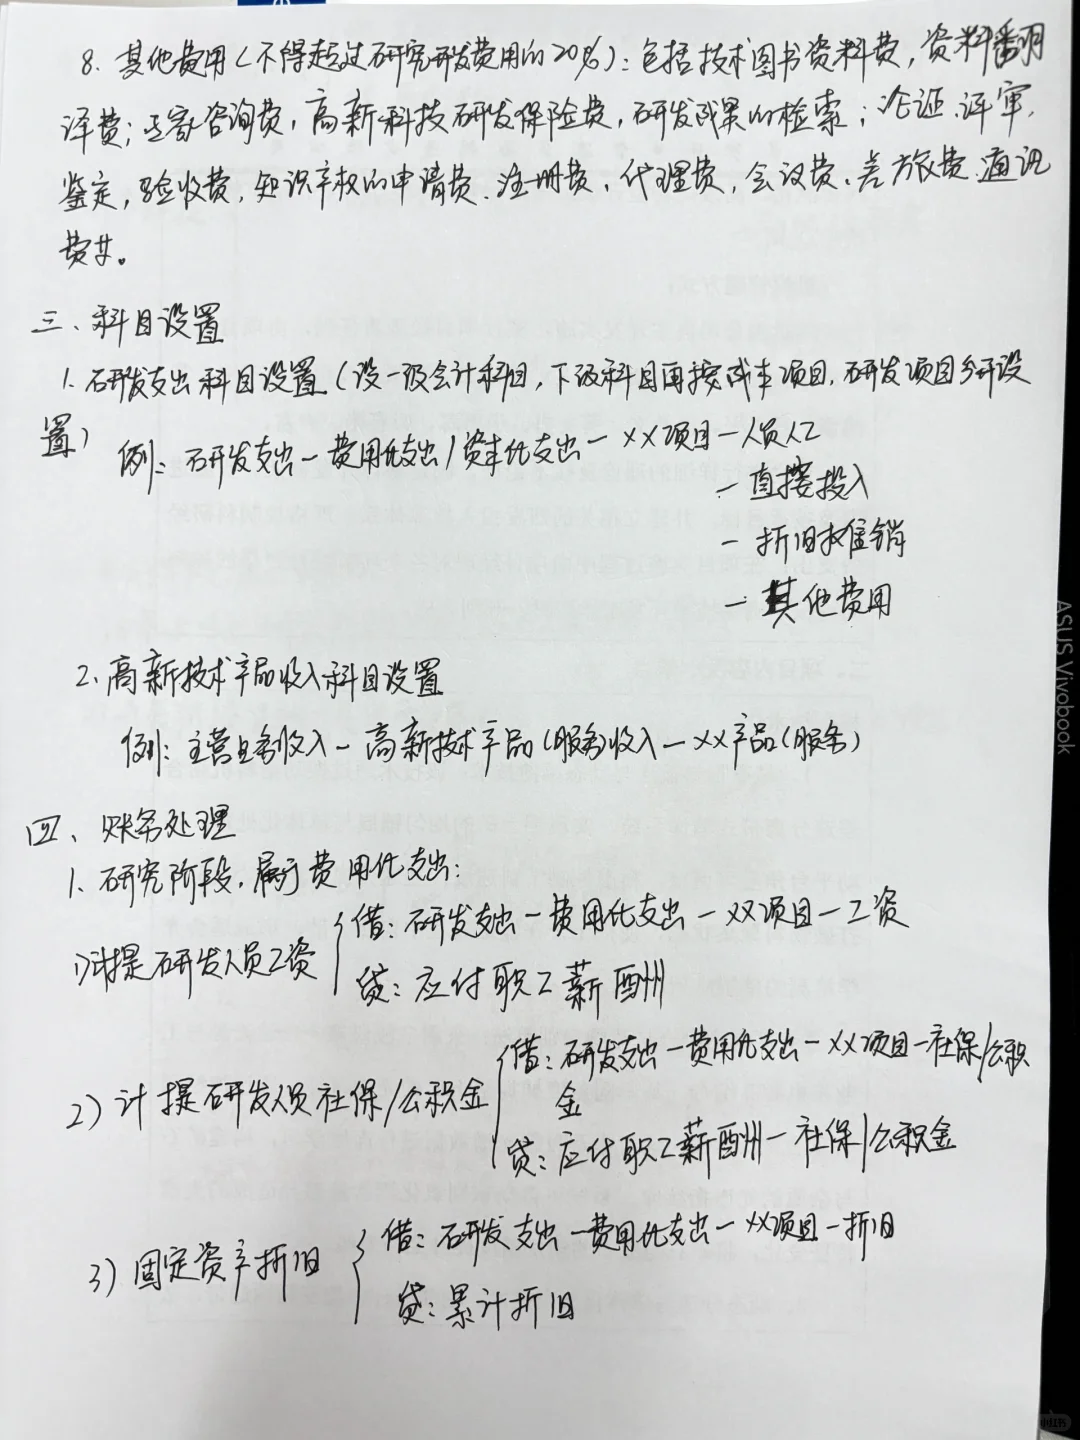 8. 其他费用(不得超过研究开发费用的20%):包括技术图书资料费,资料翻
译费;专家咨询费,高新科技研发保险费,研发成果的检索;论证、评审、
鉴定,验收费,知识产权的申请费、注册费、代理费,会议费、差旅费、通讯
费等。
三、科目设置
1. 研发支出科目设置(设一级会计科目,下级科目再按成本项目、研发项目分开设
置)
例:研发支出-费用化支出/资本化支出-XX项目-人员人工
-直接投入
-折旧摊销
-其他费用
2、高新技术产品收入科目设置
例:主营业务收入-高新技术产品(服务)收入-XX产品(服务)
四、账务处理
1、研究阶段,属于费用化支出:
借:研发支出-费用化支出-XX项目-工资
1)计提研发人员工资
贷:应付职工薪酬
借:研发支出-费用化支出-XX项目-社保/公积
金
2)计提研发人员社保/公积金
贷:应付职工薪酬-社保/公积金
借:研发支出-费用化支出-XX项目-折旧
3)固定资产折旧
贷:累计折旧
ASUS Vivobook
小红书